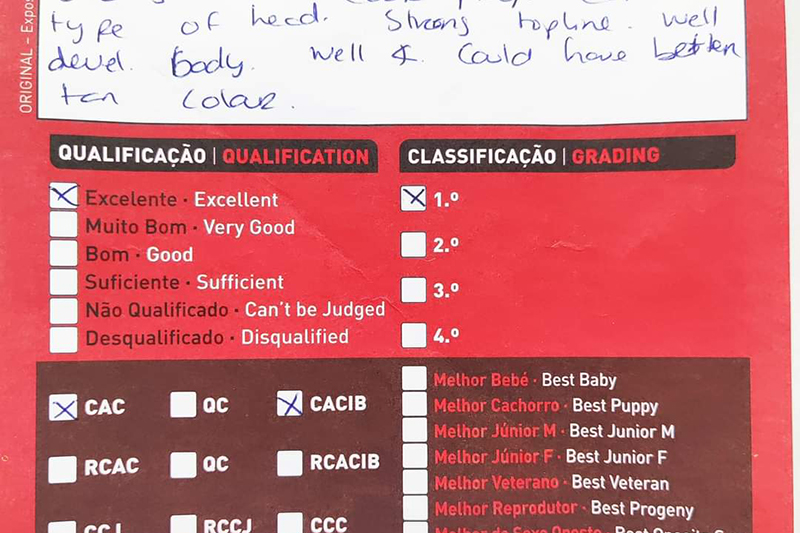 type of head. Strong topline. Well
devel. body. Well &. Could have better
tan colour.
ORIGINAL - Expos
QUALIFICAÇÃO | QUALIFICATION
Excelente · Excellent
Muito Bom · Very Good
Bom · Good
Suficiente · Sufficient
Não Qualificado · Can't be Judged
Desqualificado · Disqualified
CLASSIFICAÇÃO | GRADING
1.º
2.º
3.º
4.º
CAC QC CACIB
RCAC QC RCACIB
CCJ RCCJ CCC
Melhor Bebé · Best Baby
Melhor Cachorro · Best Puppy
Melhor Júnior M · Best Junior M
Melhor Júnior F · Best Junior F
Melhor Veterano · Best Veteran
Melhor Reprodutor · Best Progeny
Melhor do Sexo Oposto · Best Opposite S